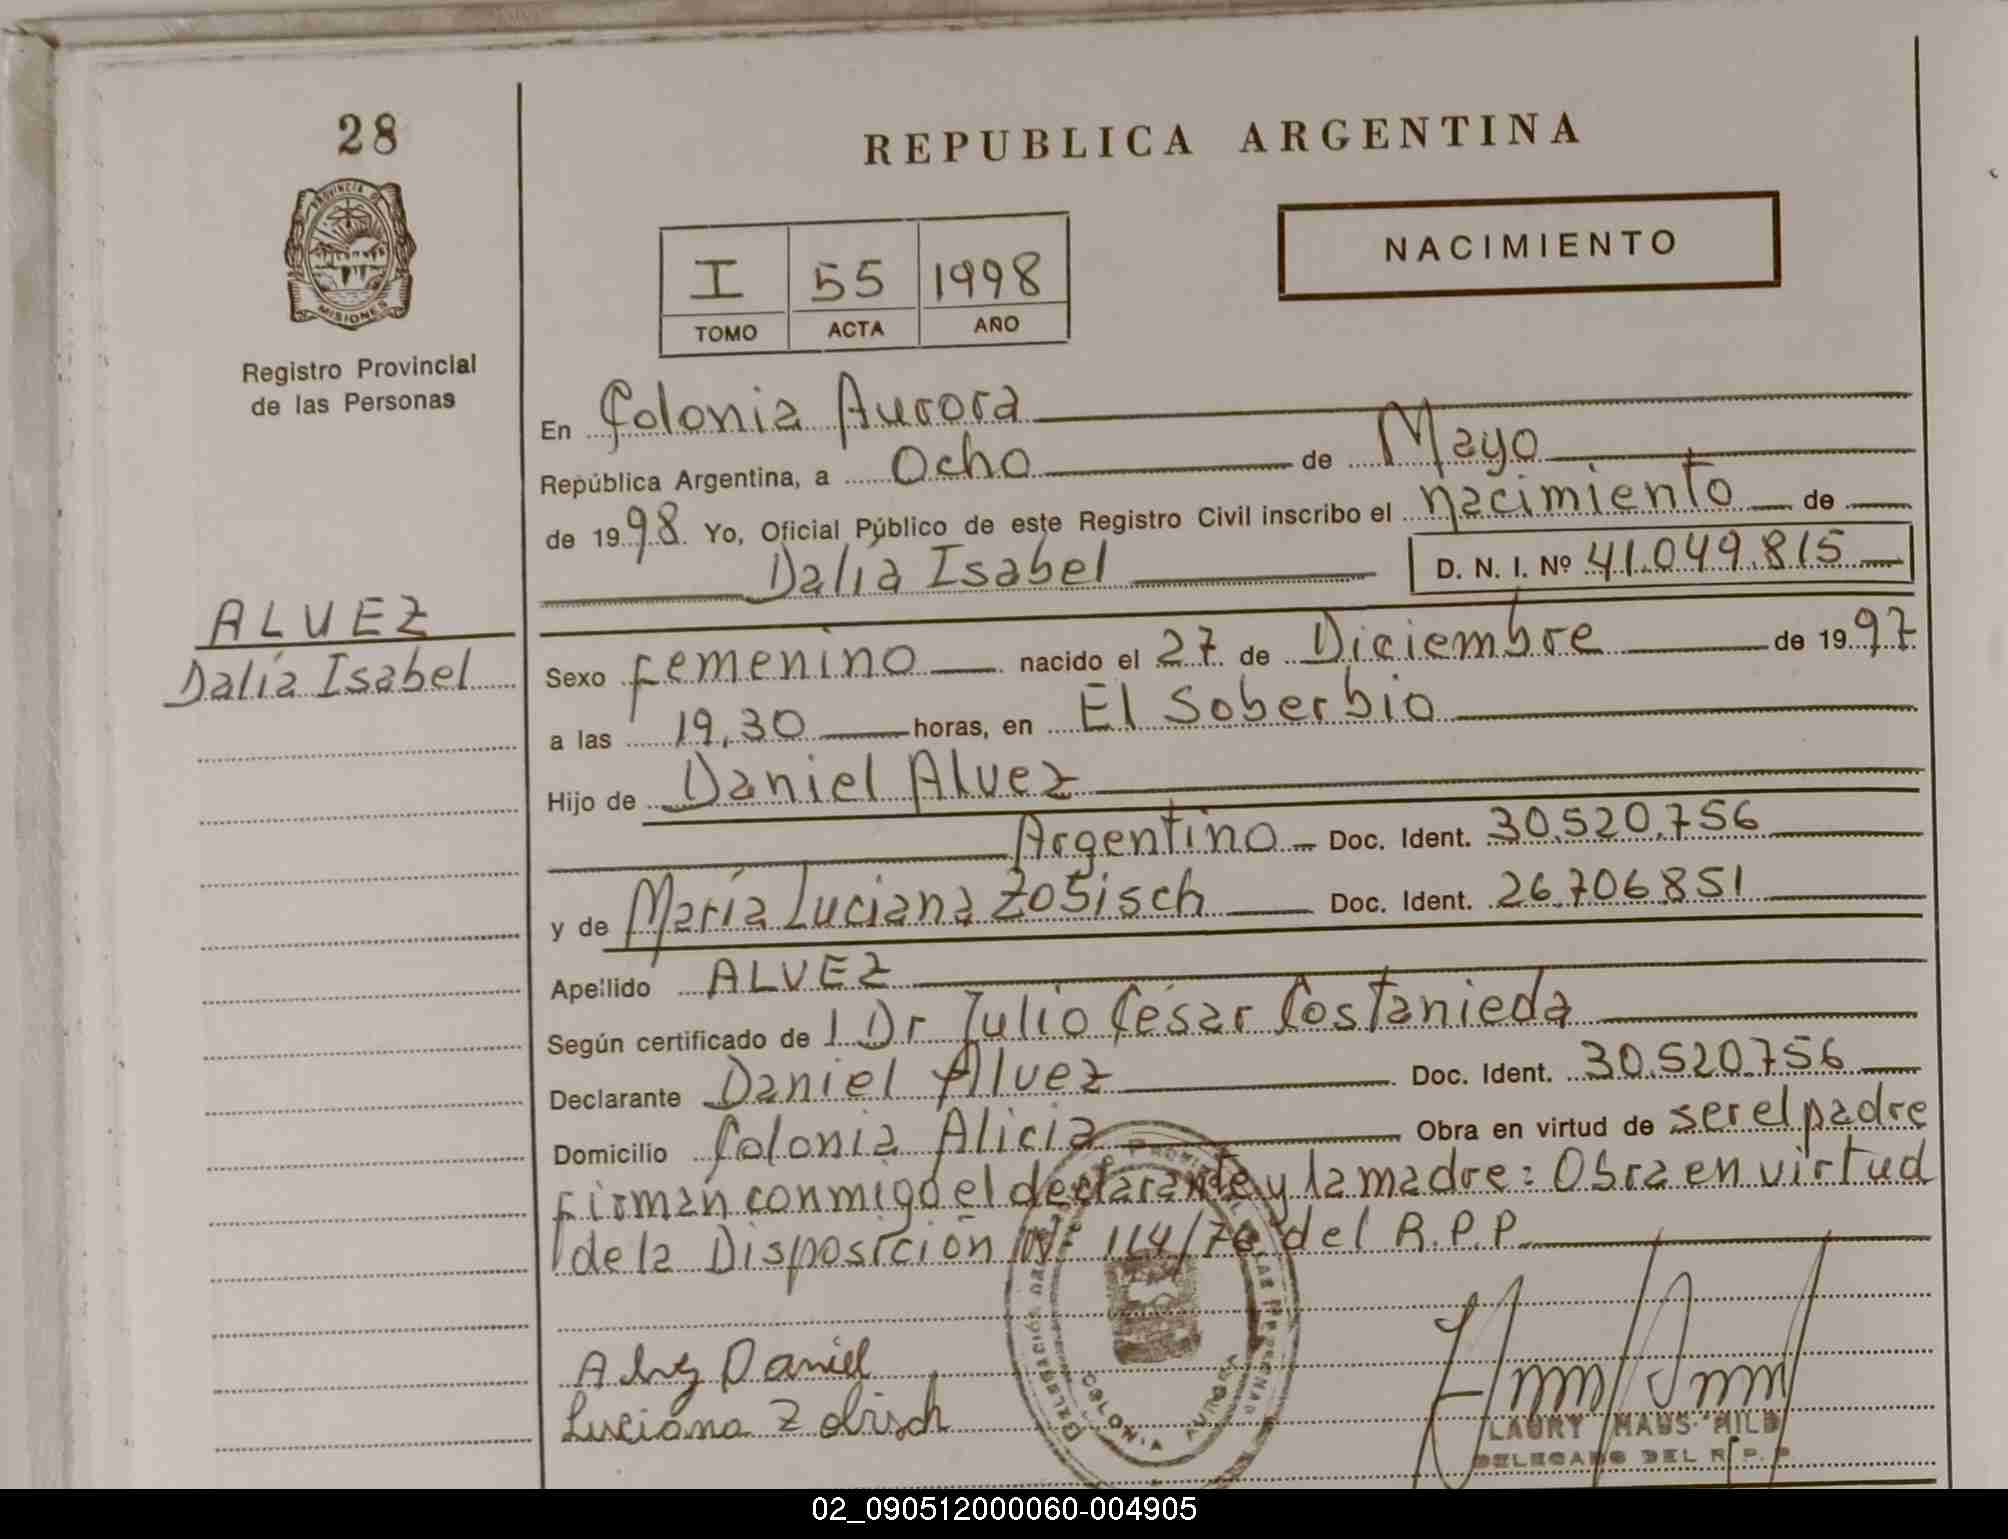 28
REPUBLICA ARGENTINA
PROVINCIA D
MISIONES
Registro Provincial
de las Personas
NACIMIENTO
I 55 1998
TOMO ACTA AÑO
En Colonia Aurora
República Argentina, a Ocho de Mayo
de 1998. Yo, Oficial Público de este Registro Civil inscribo el nacimiento de
Dalia Isabel D. N. I. Nº 41.049.815
ALVEZ
Dalia Isabel
Sexo Femenino nacido el 27 de Diciembre de 1997.
a las 19,30 horas, en El Soberbio
Hijo de Daniel Alvez
Argentino Doc. Ident. 30.520.756
y de María Luciana Zobisch Doc. Ident. 26.706.851
Apellido ALVEZ
Según certificado de l Dr Julio César Costanieda
Declarante Daniel Alvez Doc. Ident. 30.520.756
Domicilio Colonia Alicia Obra en virtud de ser el padre
Firman conmigo el declarante y la madre: Obra en virtud
de la Disposición Nº 114/76 del R.P.P.
Alvez Daniel
Luciana Zobisch
COLONIA AURORA
LAURY HAUS MILD
DELEGADO DEL R.P.P.
02_090512000060-004905